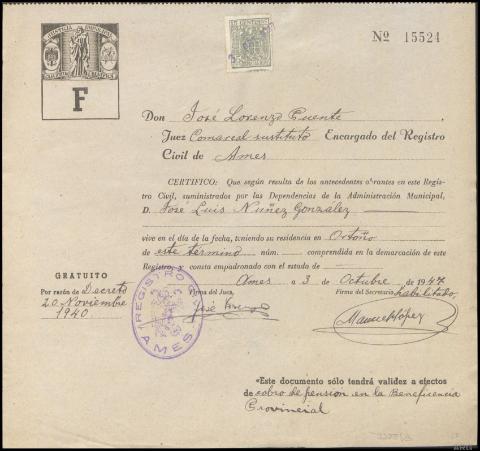 Nº 15524
F
Don José Lorenzo Puente
Juez Comarcal sustituto Encargado del Registro
Civil de Ames
CERTIFICO: Que según resulta de los antecedentes obrantes en este Regis-
tro Civil, suministrados por las Dependencias de la Administración Municipal,
D. José Luis Nuñez González
vive en el día de la fecha, teniendo su residencia en Ortoño
de este término núm. comprendida en la demarcación de este
Registro, y consta empadronado con el estado de
Ames a 3 de Octubre de 1947
GRATUITO
Por razón de Decreto
20 Noviembre
1940
Firma del Juez,
José Lorenzo
Firma del Secretario habilitado,
Manuel López
REGISTRO CIVIL
AMES
"Este documento sólo tendrá validez a efectos
de cobro de pensión en la Beneficencia
Provincial